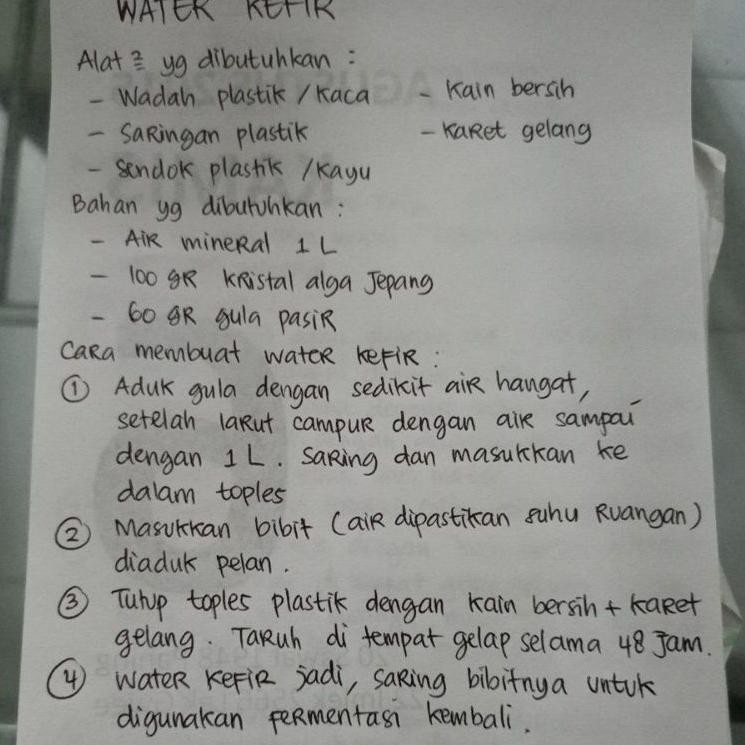 WATER KEFIR
Alat2 yg dibutuhkan :
- Wadah plastik / Kaca - Kain bersih
- Saringan plastik - Karet gelang
- Sendok plastik / Kayu
Bahan yg dibutuhkan :
- Air mineral 1 L
- 100 gr kristal alga Jepang
- 60 gr gula pasir
Cara membuat water kefir :
① Aduk gula dengan sedikit air hangat,
setelah larut campur dengan air sampai
dengan 1 L. Saring dan masukkan ke
dalam toples
② Masukkan bibit (air dipastikan suhu Ruangan)
diaduk pelan.
③ Tutup toples plastik dengan kain bersih + karet
gelang. Taruh di tempat gelap selama 48 Jam.
④ Water Kefir jadi, saring bibitnya untuk
digunakan fermentasi kembali.